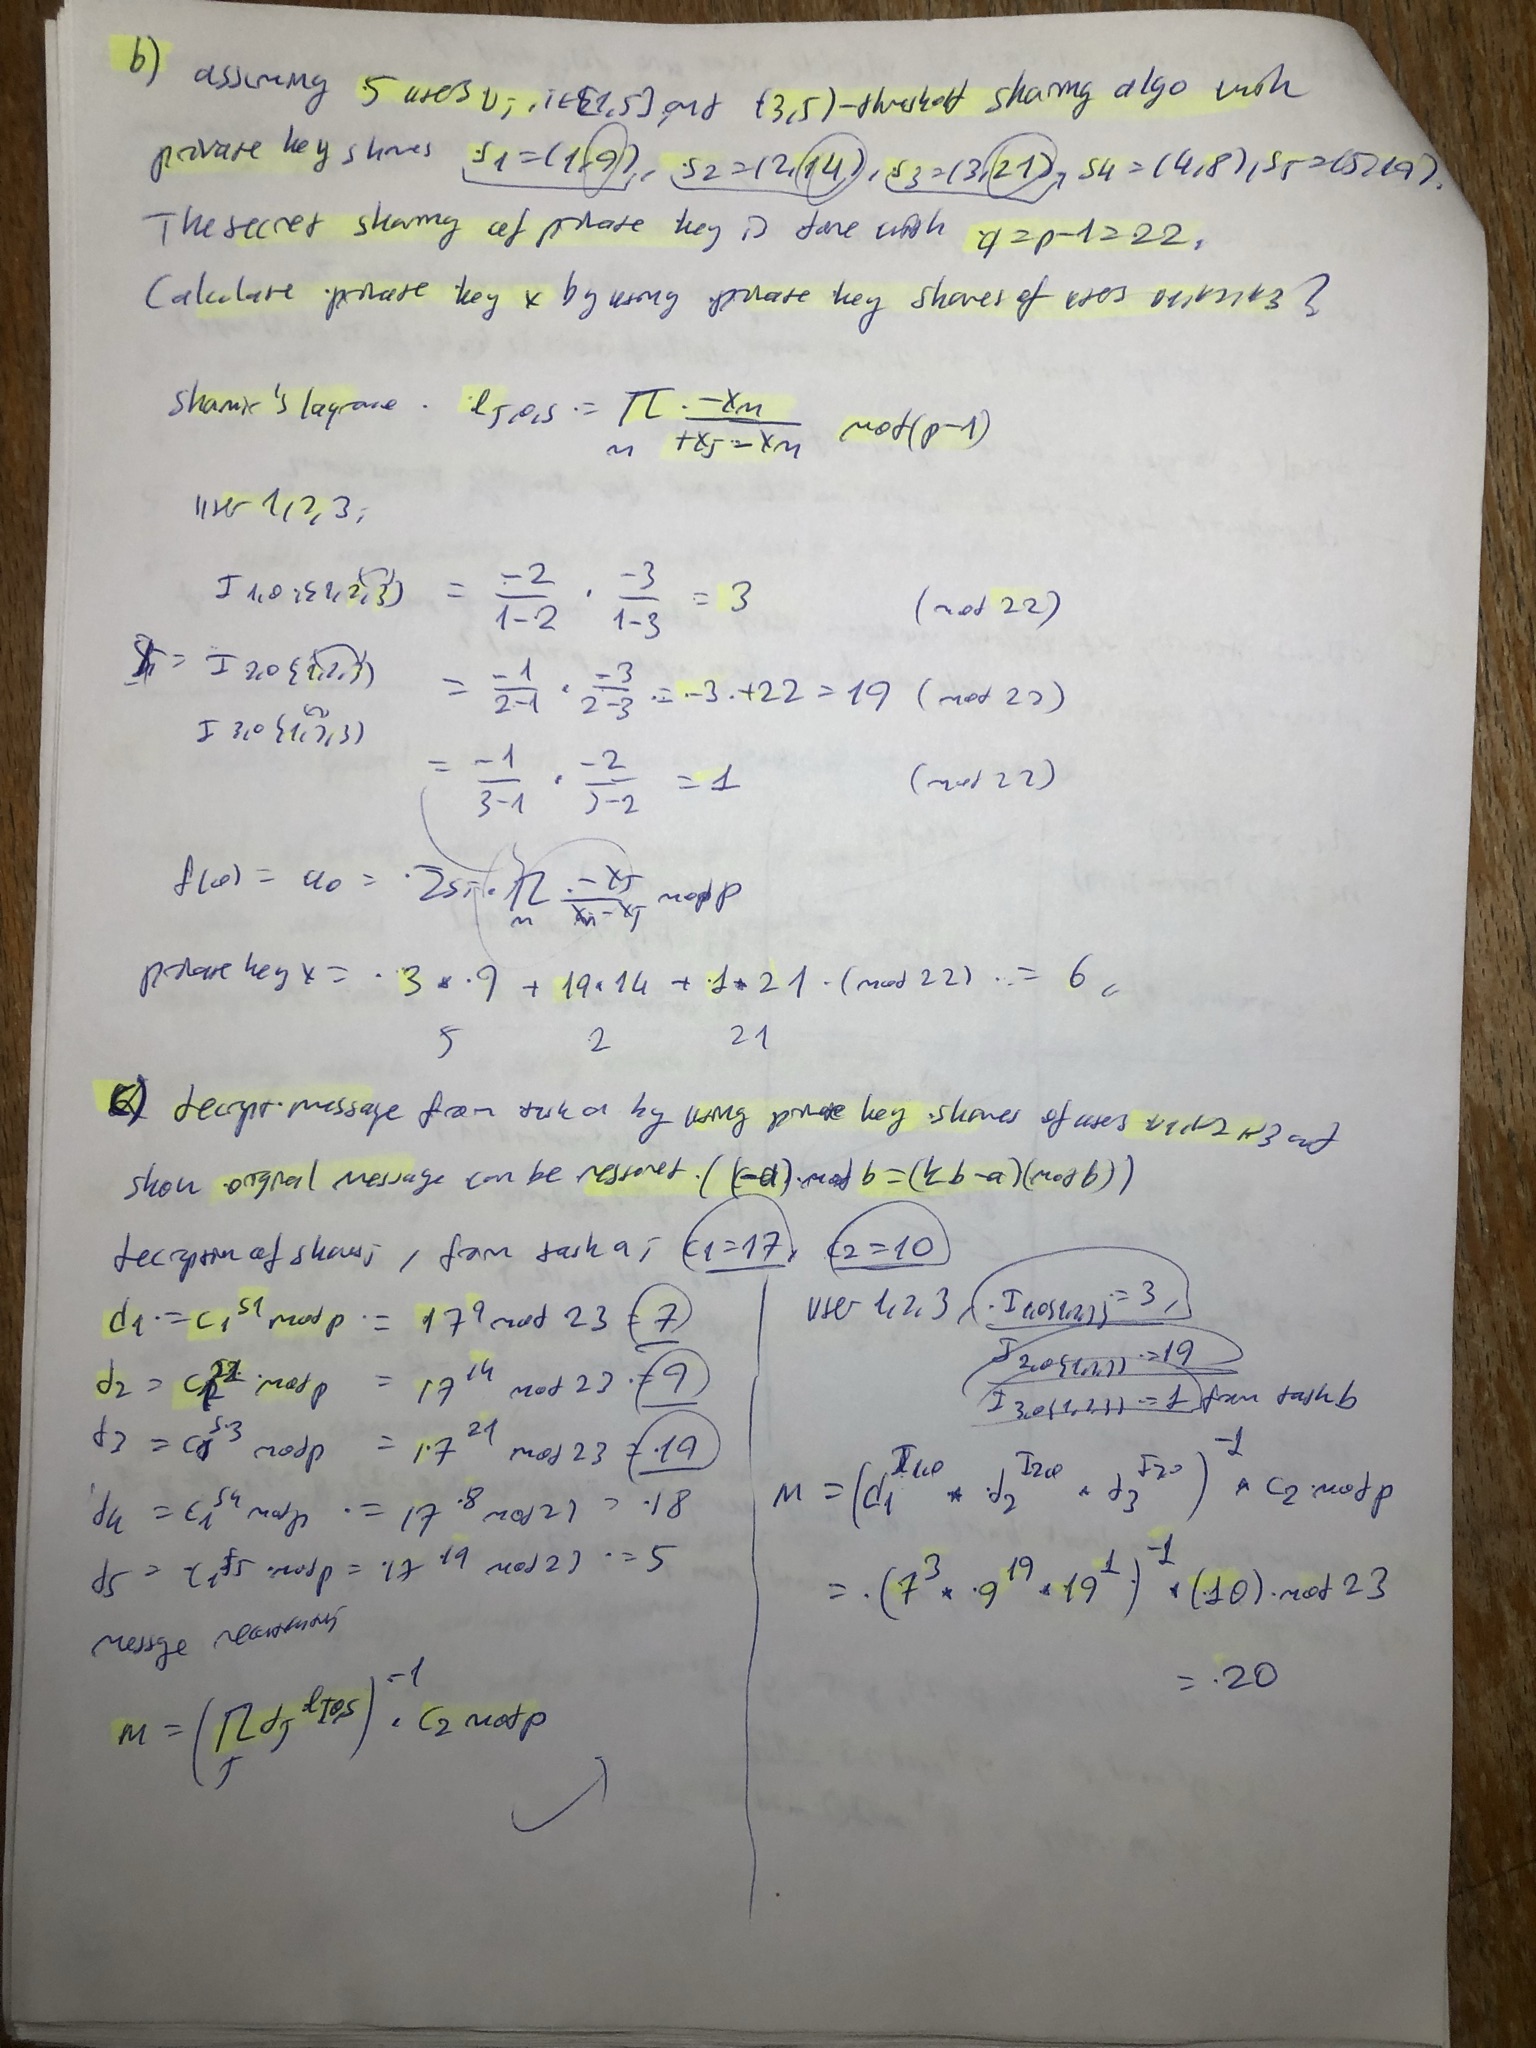 b) assuming 5 users vi, i∈[1,5] and (3,5)-threshold sharing algo with
private key shares s1=(1,9), s2=(2,14), s3=(3,21), s4=(4,8), s5=(5,19).
The secret sharing of private key is done with q=p-1=22.
Calculate private key x by using private key shares of users v1,v2,v3?
Shamir's lagrange. lj,0,s = Π -xm / +xj-xm mod(p-1)
m
user 1,2,3,
I 1,0,{1,2,3} = -2/1-2 · -3/1-3 = 3 (mod 22)
I 2,0{1,2,3} = -1/2-1 · -3/2-3 = -3+22=19 (mod 22)
I 3,0{1,2,3}
= -1/3-1 · -2/3-2 = 1 (mod 22)
f(0) = a0 = Σsi · Π -xj / xm-xj mod p
m
private key x = 3 * 9 + 19*14 + 1*21 (mod 22) = 6
5 2 21
c) decrypt message from task a by using private key shares of users v1,v2,v3 and
show original message can be restored. ((-a) mod b = (kb-a)(mod b))
decryption of shares, from task a, c1=17, c2=10
d1 = c1^s1 mod p = 17^9 mod 23 = 7
d2 = mod p = 17^14 mod 23 = 9
d3 = c1^s3 mod p = 17^21 mod 23 = 19
d4 = c1^s4 mod p = 17^8 mod 23 = 18
d5 = c1^s5 mod p = 17^19 mod 23 = 5
message
M = (Π dj^lj,0,s)^-1 · c2 mod p
J
user 1,2,3, I1,0{1,2,3} = 3,
I2,0{1,2,3} = 19
I3,0{1,2,3} = 1 from task b
M = (d1^I1,0 * d2^I2,0 * d3^I3,0)^-1 * c2 mod p
= (7^3 * 9^19 * 19^1)^-1 * (10) mod 23
= 20